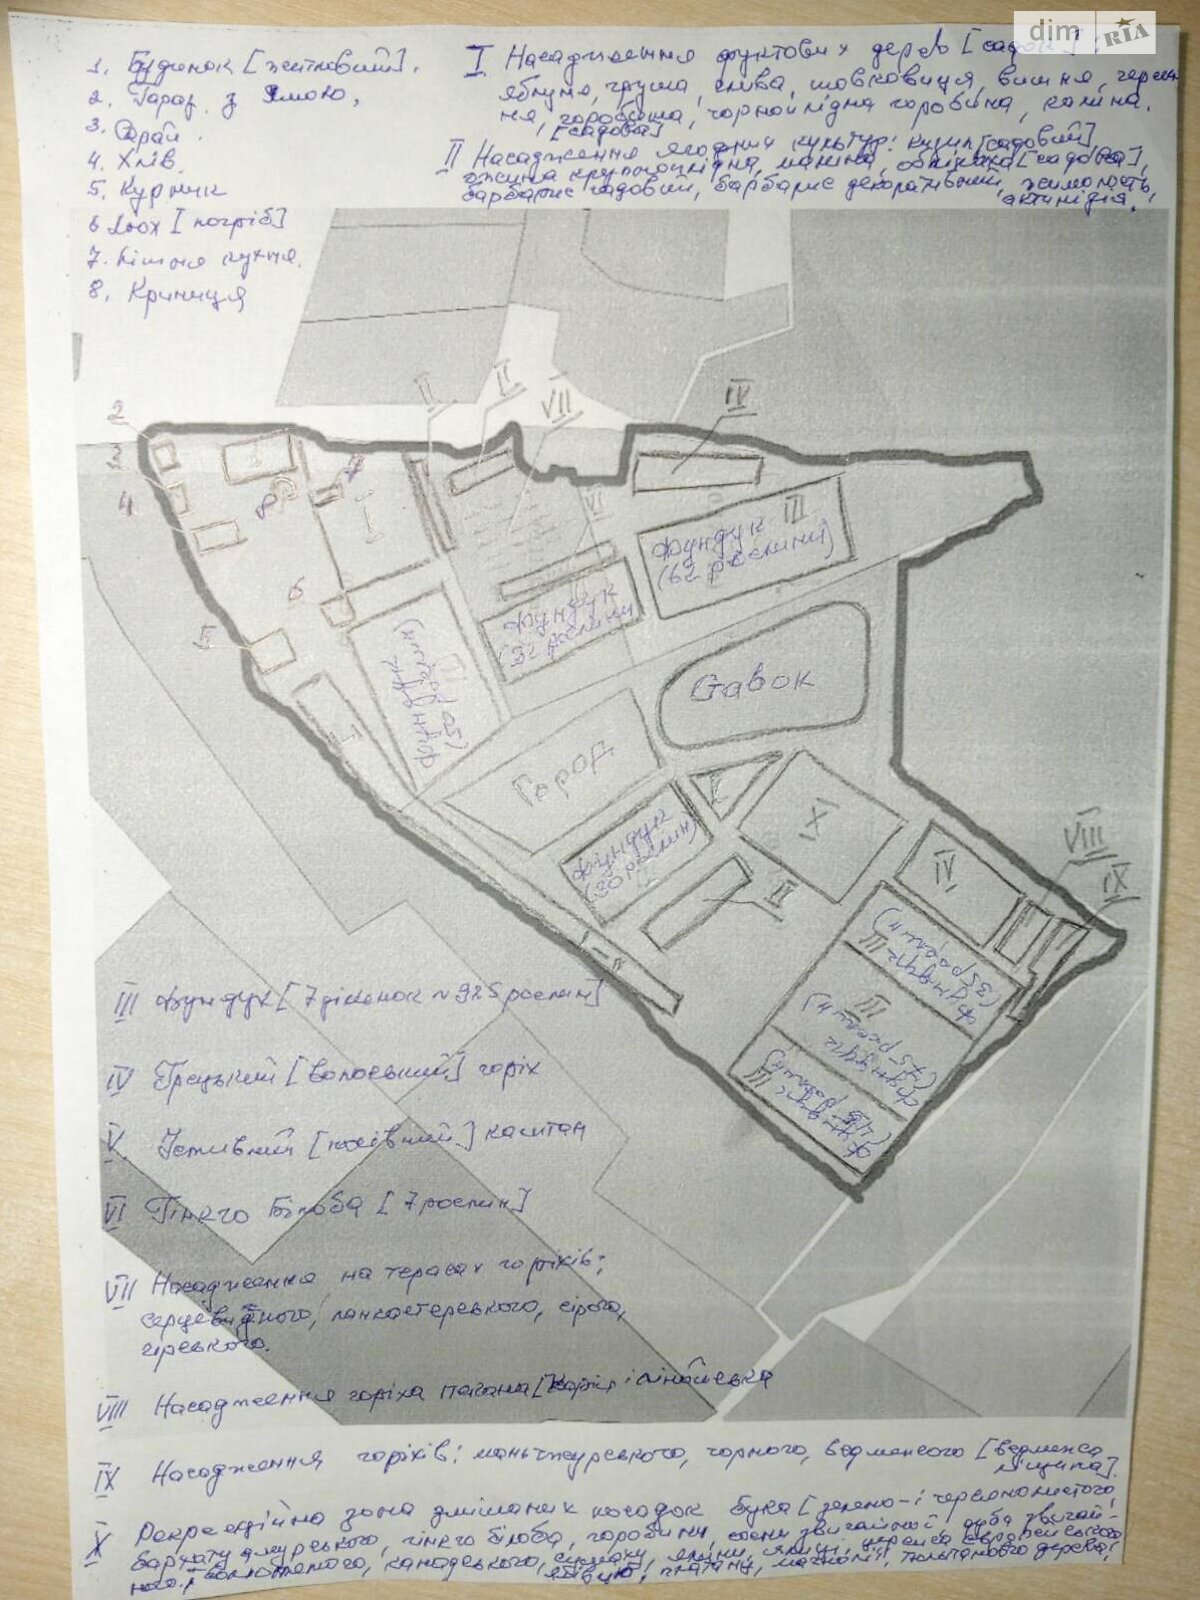 dim RIA
1. Будинок [житловий].
2. Гараж з ямою,
3. Сарай.
4. Хлів.
5. Курник
6 Льох [погріб]
7. Літня кухня.
8. Криниця
I Насадження фруктових дерев [садок]:
яблуня, груша, слива, шовковиця, вишня, череш
ня, горобина, чорноплідна горобина, калина.
[садова]
II Насадження ягодних культур: кизил [садовий]
ожина крупноплідна, малина, обліпиха [садова],
барбарис садовий, барбарис декоративний, жимолость,
актинідія.
2
3
4
1
8
7
I
II
II
VII
IV
VI
6
5
Фундук III
(62 рослини)
Фундук
(32 рослини
Фундук
(50 рослин)
I
Ставок
Город
Фундук
(30 рослин)
X
IV
VIII
IX
II
II
Фундук III
(35 рослин)
III
Фундук
Фундук III
III Фундук [7 ділянок ~ 325 рослин]
IV Грецький [волоський] горіх
V. Їстивний [посівний] каштан
VI Гінкго Білоба [7 рослин]
VII Насадження на терасах горіхів:
серцевидного, ланкастерського, сірого,
зірського.
VIII Насадження горіха пекана [Карія іллінойська
IX Насадження горіхів: маньчжурського, чорного, ведмежого [ведмежа
ліщина].
X Рекреаційна зона змішаних посадок бука [зелено- і червонолистого,
бархату амурського, гінкго білоба, горобини, сосни звичайної, дуба звичай-
ного, канадського, сумаху, ялини, ялиці, церциса європейського
ялівцю, платану, магнолії, тюльпанового дерева,